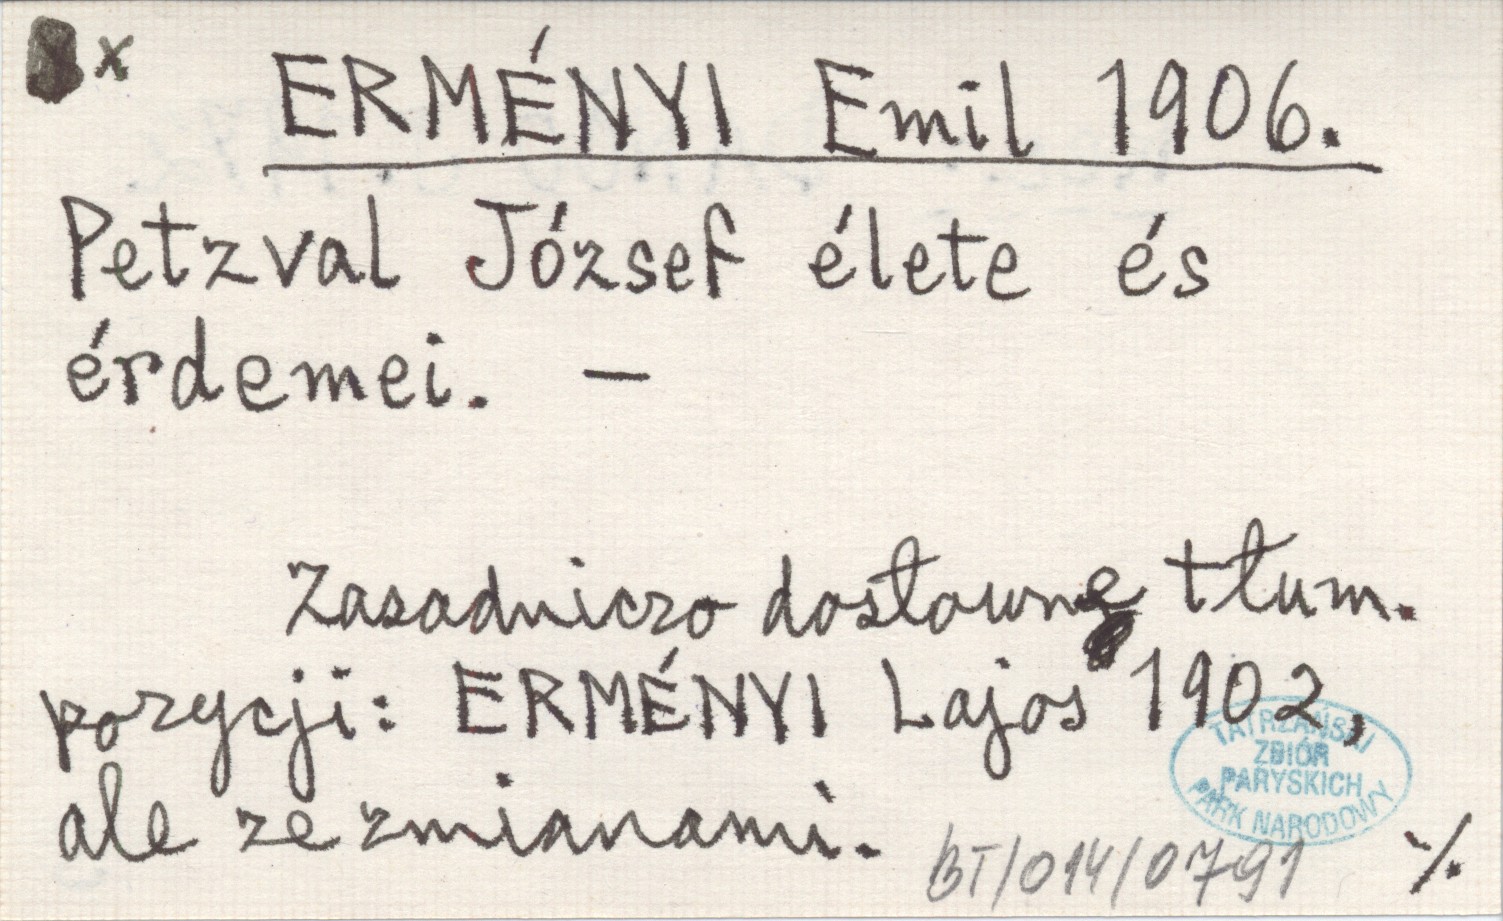 x ERMÉNYI Emil 1906.
Petzval József élete és
érdemei. –
Zasadniczo dosłowne tłum.
pozycji: ERMÉNYI Lajos 1902,
ale ze zmianami.
TATRZAŃSKI
ZBIÓR
PARYSKICH
PARK NARODOWY
BT/014/0791
·/.